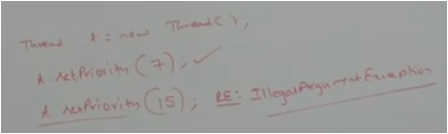 Thread t = new Thread();
t setPriority (7); ✓
t setPriority (15); RE: IllegalArgumentException